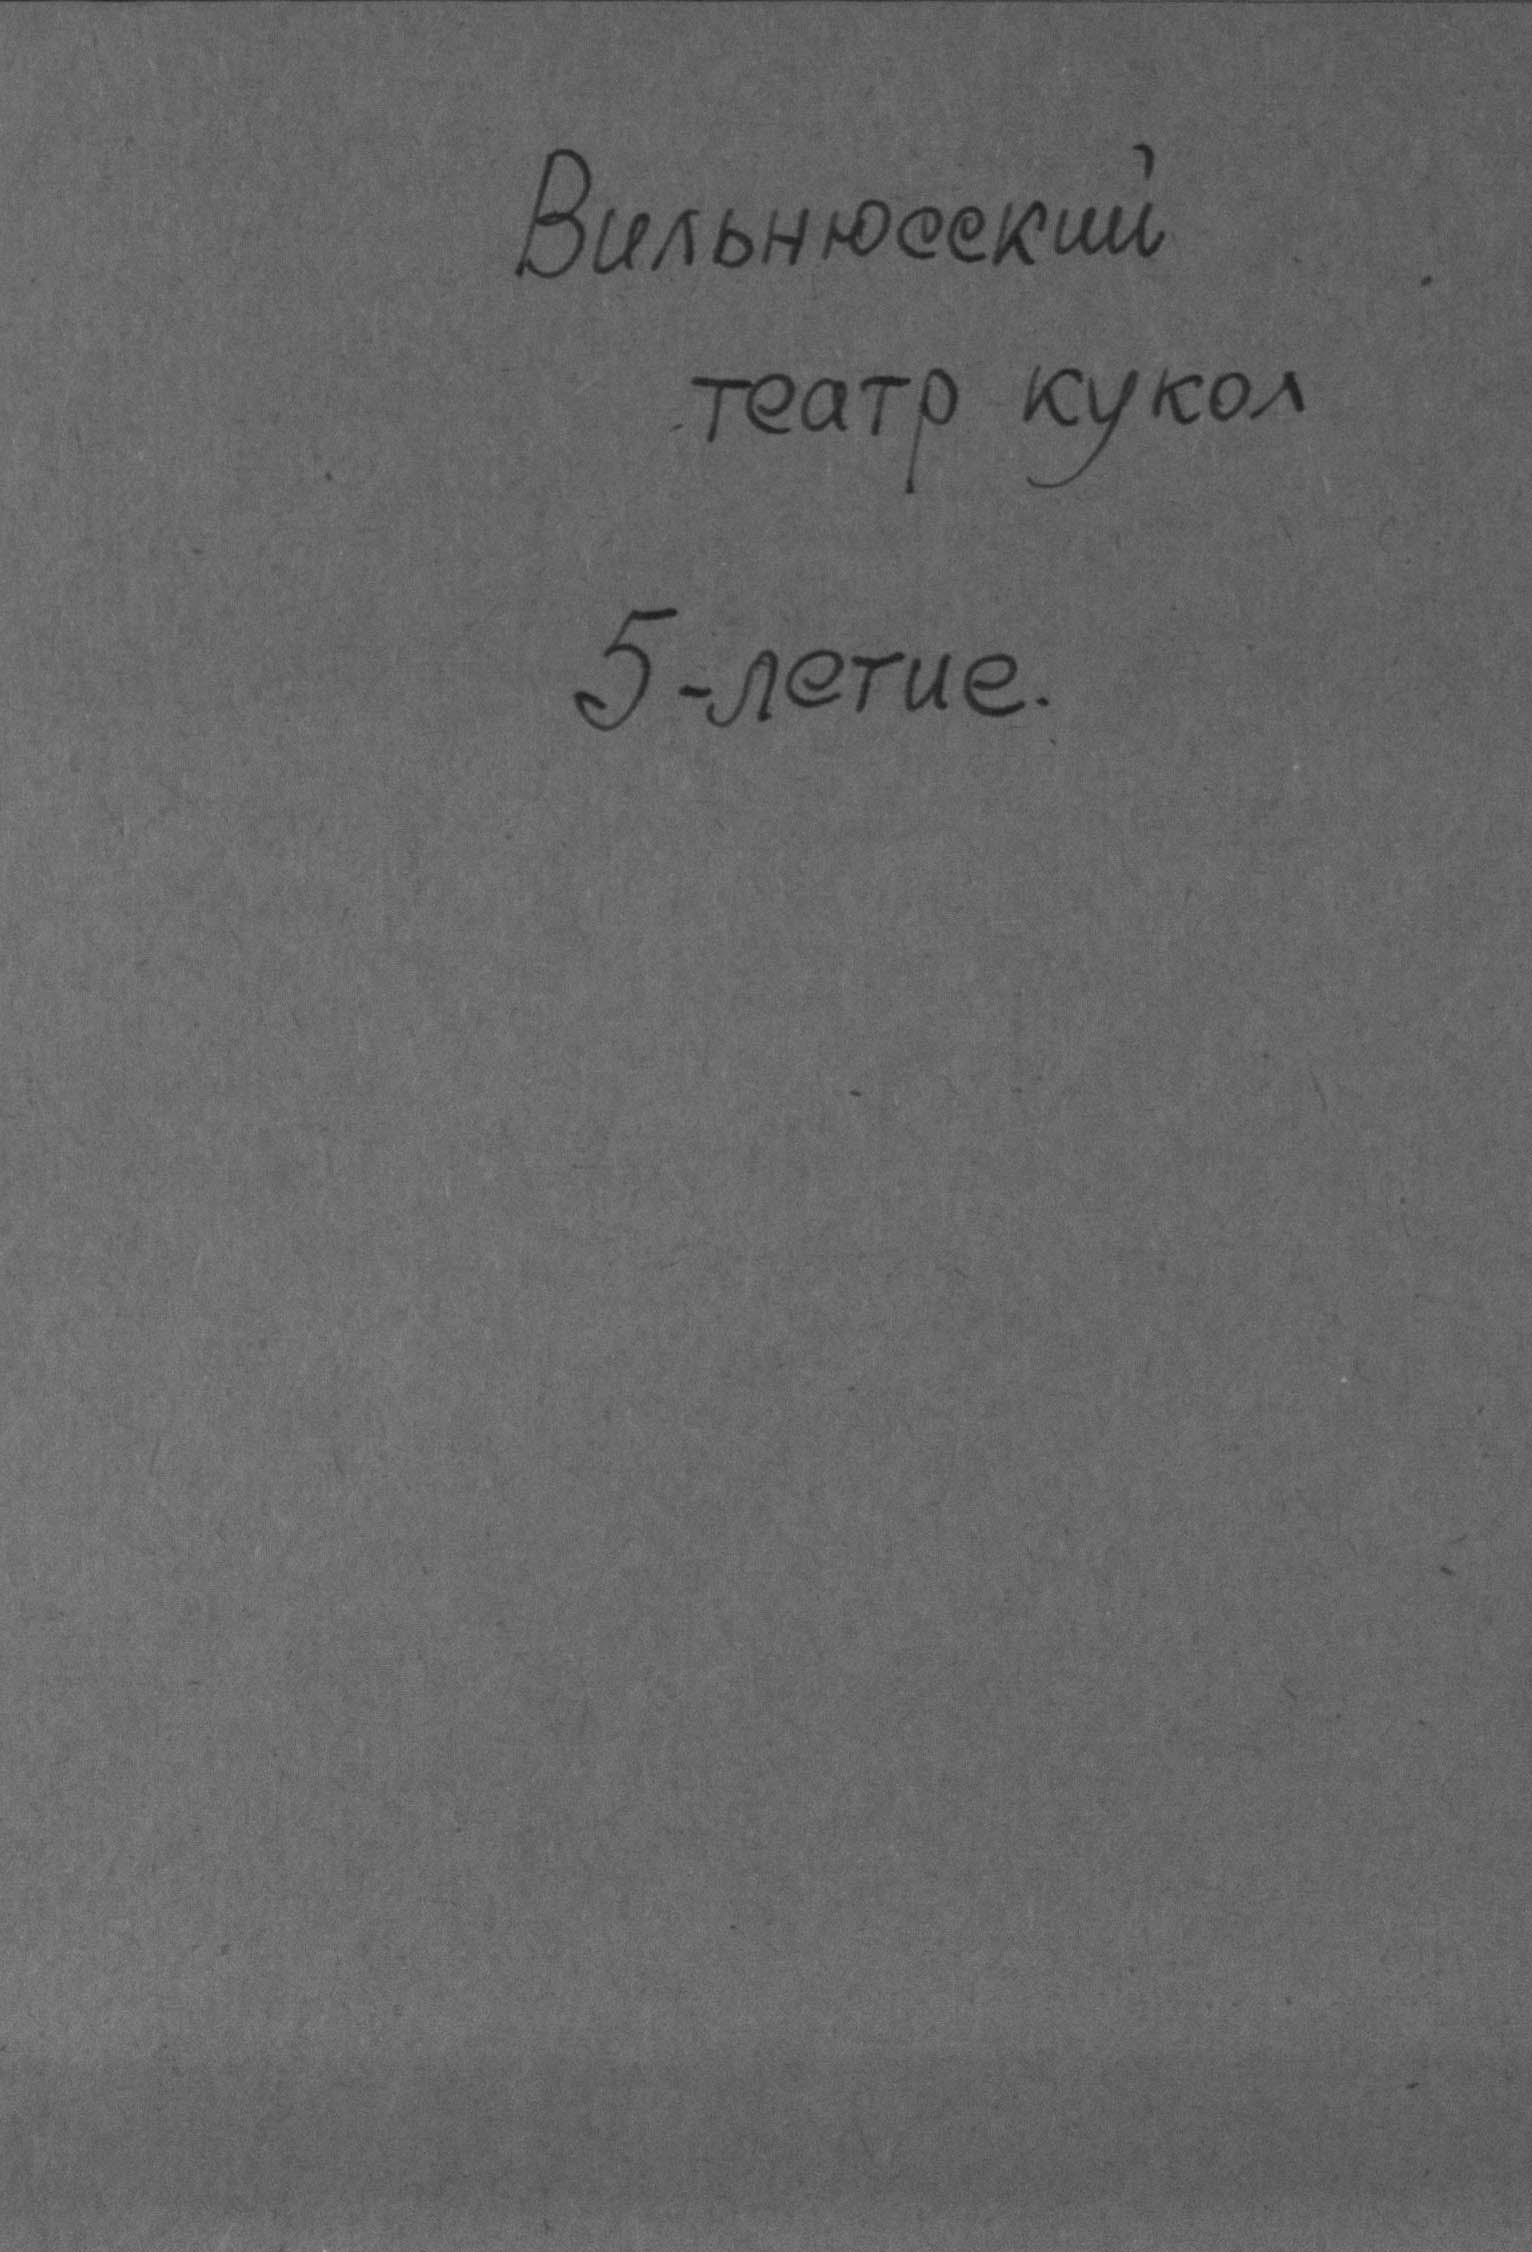 Вильнюсский
театр кукол
5-летие.